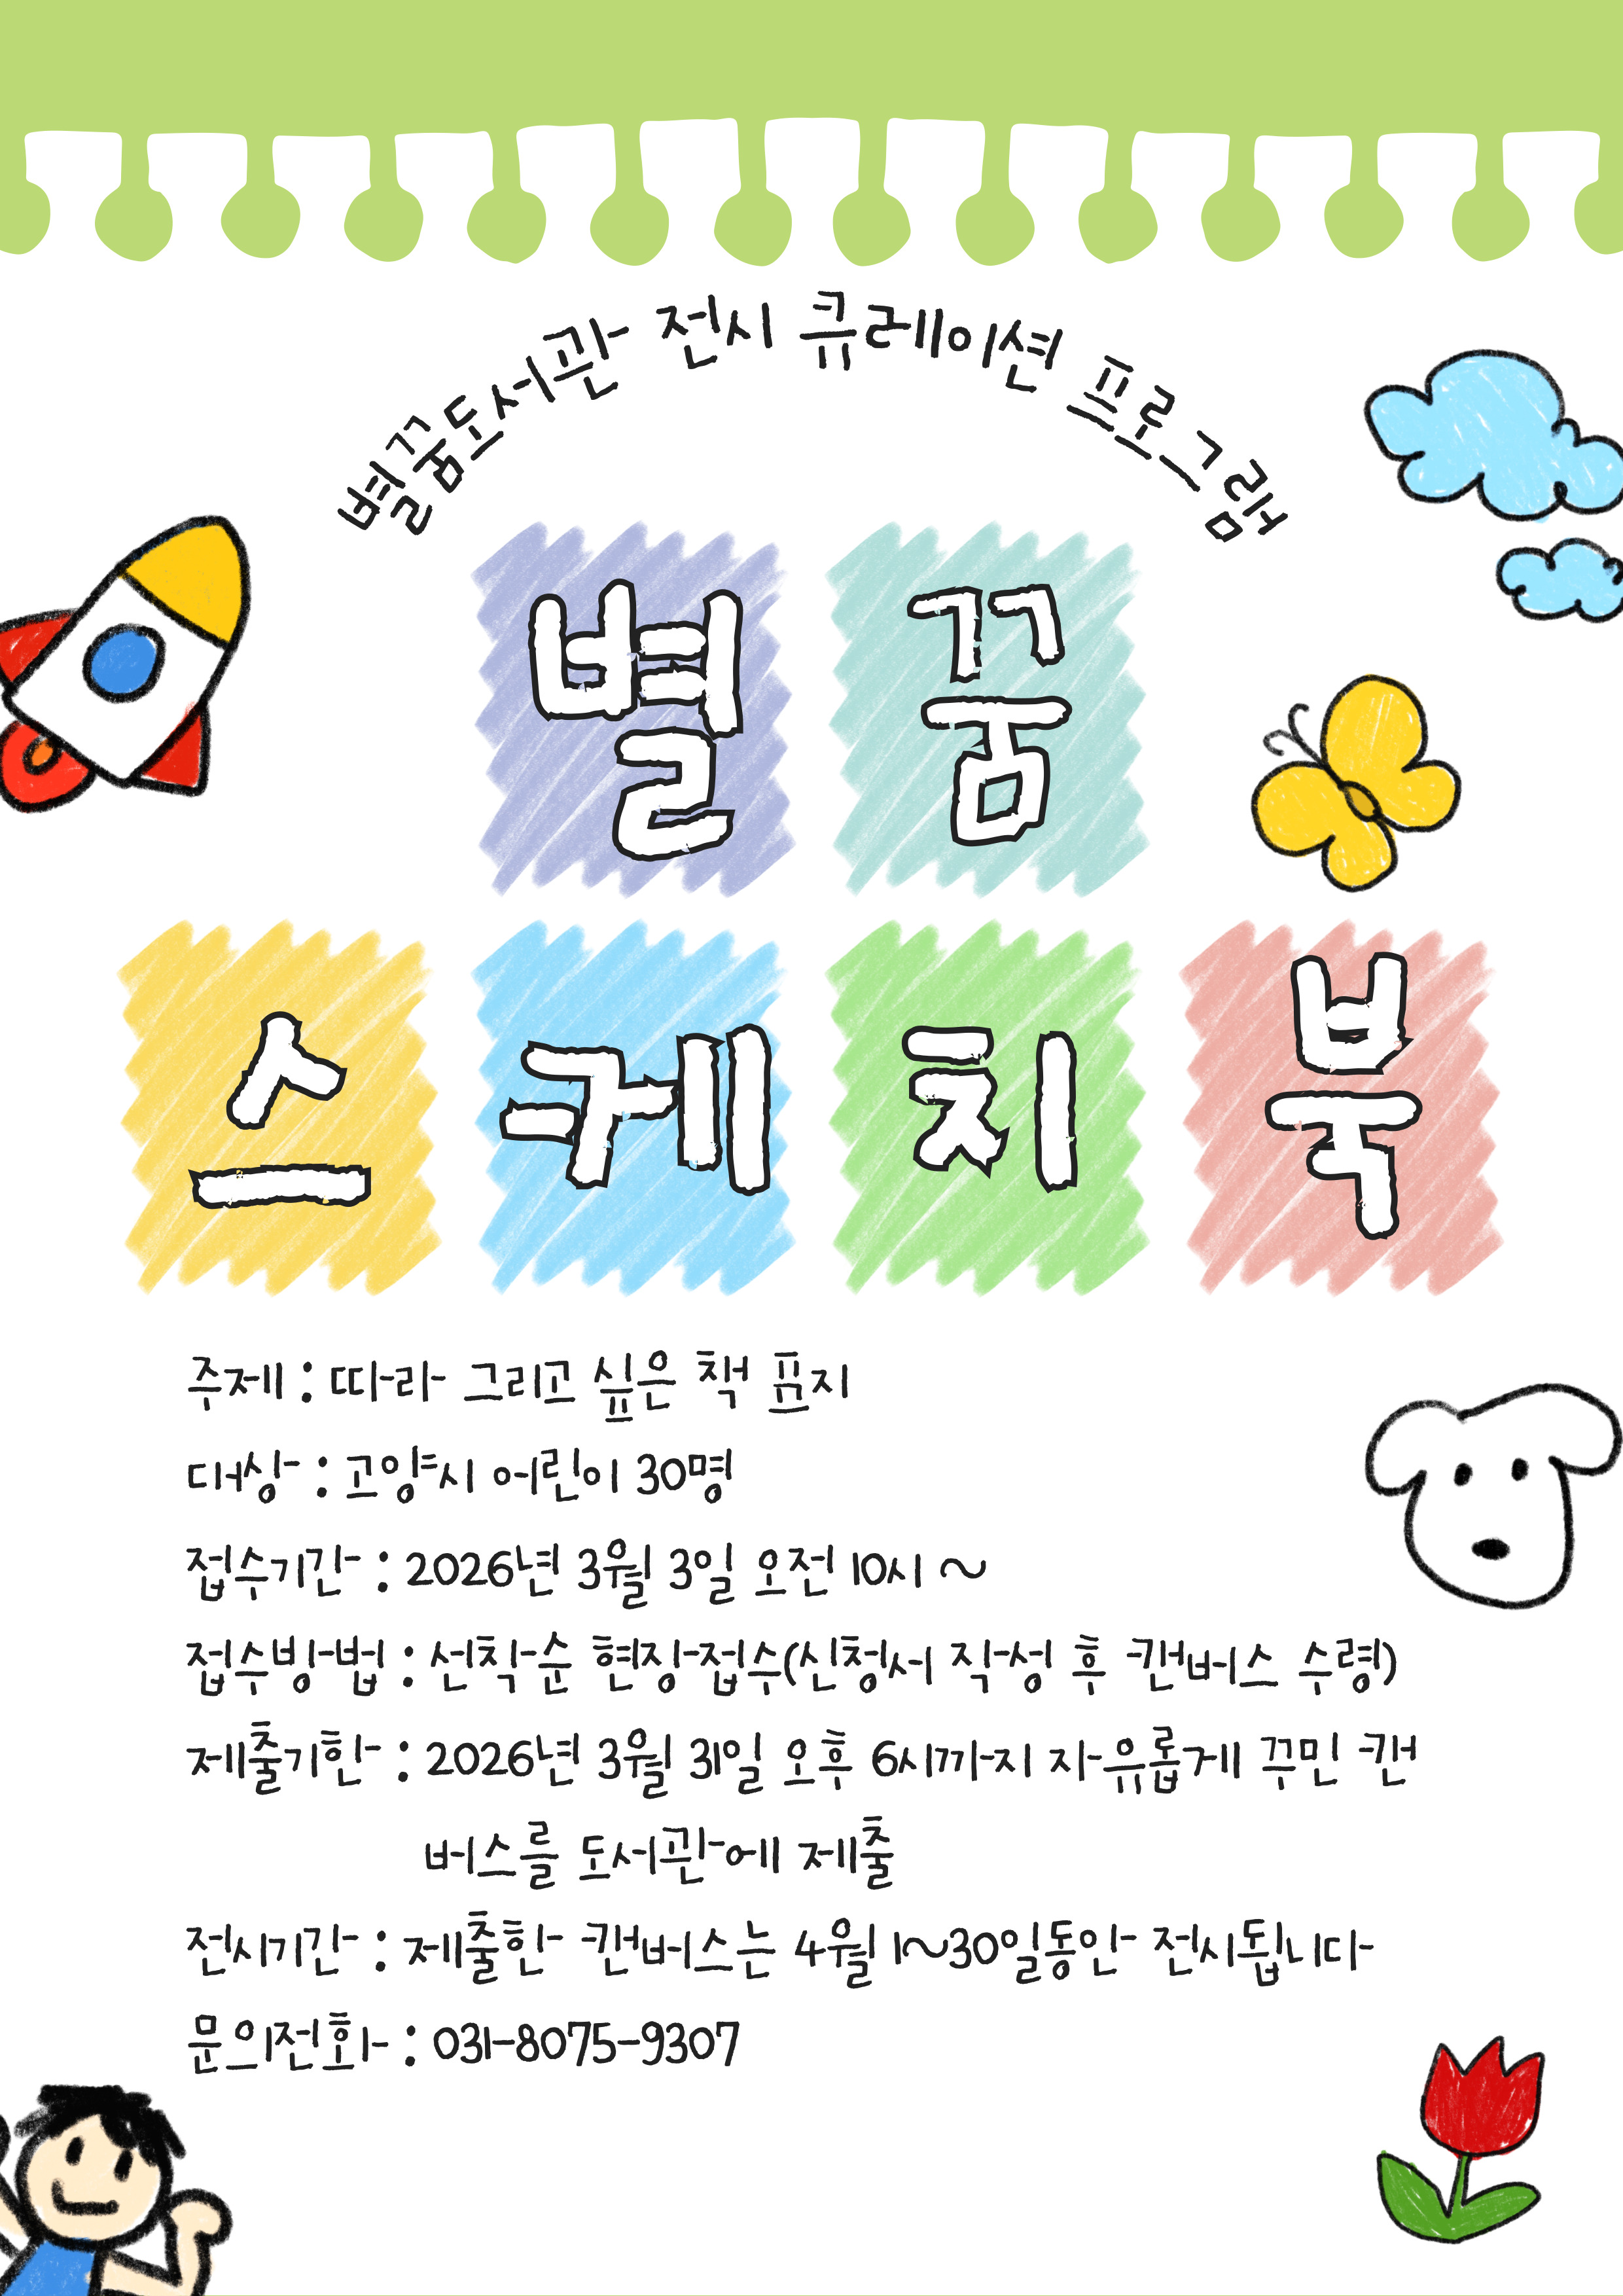 별꿈도서관 전시 큐레이션 프로그램
별꿈
스케치북
주제 : 따라 그리고 싶은 책 표지
대상 : 고양시 어린이 30명
접수기간 : 2026년 3월 3일 오전 10시 ~
접수방법 : 선착순 현장접수(신청서 작성 후 캔버스 수령)
제출기한 : 2026년 3월 31일 오후 6시까지 자유롭게 꾸민 캔
버스를 도서관에 제출
전시기간 : 제출한 캔버스는 4월 1~30일동안 전시됩니다
문의전화 : 031-8075-9307